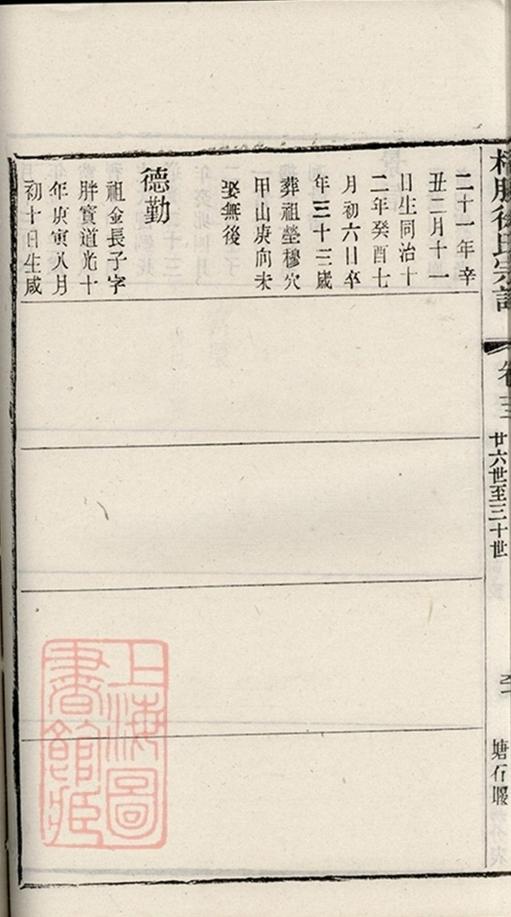 徐氏宗譜
卷三
廿六世至三十世
塘石堰
二十一年辛
丑二月十一
日生同治十
二年癸酉七
月初六日卒
年三十三歲
葬祖塋穆穴
甲山庚向未
娶無後
德勤
祖金長子字
胖寳道光十
年庚寅八月
初十日生咸
上海圖書館藏